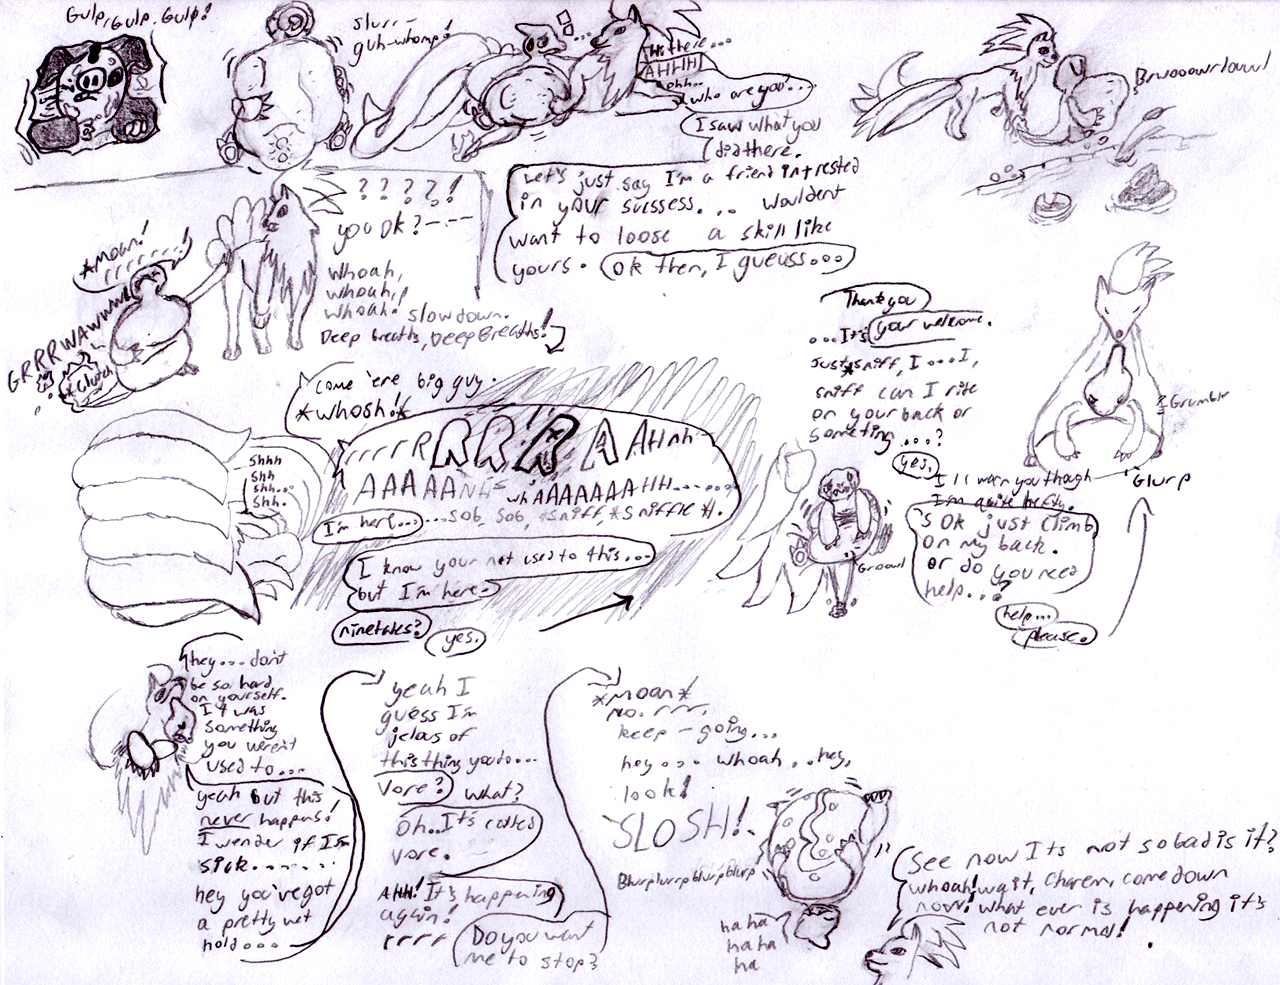 Gulp, Gulp, Gulp!
slurr-
guh-whomp!
!□...
Hi there...
AHHH!
oohh..
who are you...
I saw what you
did there.
Let's just say I'm a friend intrested
in your sussess... wouldent
want to loose a skill like
yours.
Ok then, I gueuss...
Brwooowrlouwl
? ? ? ? !
you ok?----
Whoah,
whoah,
whoah. slow down.
Deep breaths, Deep Breaths!
*moan!
rrrrr!
GRRRWAWWWW
*clutch
come 'ere big guy.
*whosh!*
shhh
shh
shh...
Shh.
rrrrRRRRAAHhh
AAAAANH whAAAAAAAHH......
...sob, sob, *sniff, *sniffle*.
I'm here...
I know your not used to this...
but I'm here.
ninetales?
yes.
Thank you
...It's your welcome.
just *sniff, I...I,
sniff can I ride
on your back or
someting...?
yes.
I'll warn you though
I'm quite hefty.
's ok just climb
on my back.
or do you need
help...?
help...
please.
Groowl
Grumble
Glurp
hey... don't
be so hard
on yourself.
It was
something
you weren't
used to...
yeah but this
never happens!
I wonder if I'm
sick.......
hey you've got
a pretty wet
hold...
yeah I
guess I'm
jelous of
this thing you do...
Vore?
what?
Oh..It's called
vore.
AHH! It's happening
again!
rrrr
Do you want
me to stop?
*moan*
no. rrrr,
keep-going...
hey... whoah...hey,
look!
SLOSH!
Blurpblurpblurpblurp
ha ha
ha ha
ha
See now Its not so bad is it?
whoah! wait, Charem, come down
now! what ever is happening it's
not normal!